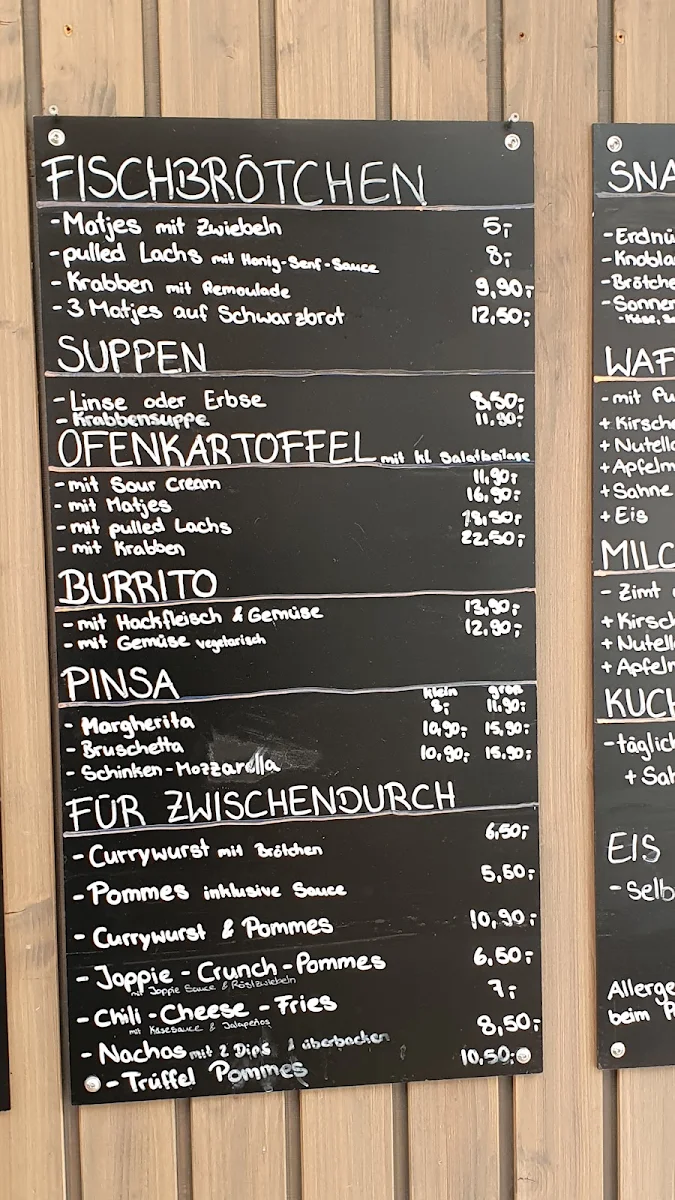 FISCHBRÖTCHEN
-Matjes mit Zwiebeln 5,-
-pulled Lachs mit Honig-Senf-Sauce 8,-
-Krabben mit Remoulade 9,90,-
-3 Matjes auf Schwarzbrot 12,50,-
SUPPEN
-Linse oder Erbse 8,50,-
-Krabbensuppe 11,90,-
OFENKARTOFFEL mit kl. Salatbeilage
-mit Sour Cream 11,90,-
-mit Matjes 16,90,-
-mit pulled Lachs 18,50,-
-mit Krabben 22,50,-
BURRITO
-mit Hackfleisch & Gemüse 13,90,-
-mit Gemüse vegetarisch 12,90,-
PINSA klein groß
-Margherita 8,- 11,90,-
-Bruschetta 10,90,- 15,90,-
-Schinken-Mozzarella 10,90,- 15,90,-
FÜR ZWISCHENDURCH
-Currywurst mit Brötchen 6,50,-
-Pommes inklusive Sauce 5,50,-
-Currywurst & Pommes 10,90,-
-Joppie-Crunch-Pommes 6,50,-
mit Joppie Sauce & Röstzwiebeln
-Chili-Cheese-Fries 7,-
mit Käsesauce & Jalapeños
-Nachos mit 2 Dips & überbacken 8,50,-
-Trüffel Pommes 10,50,-
SNA
-Erdnü
-Knobla
-Brötche
-Sonnen
WAF
-mit Pu
+Kirsche
+Nutella
+Apfelm
+Sahne
+Eis
MILC
-Zimt
+Kirsch
+Nutell
+Apfelm
KUCH
-täglich
+Sah
EIS
-Selb
Allerge
beim P